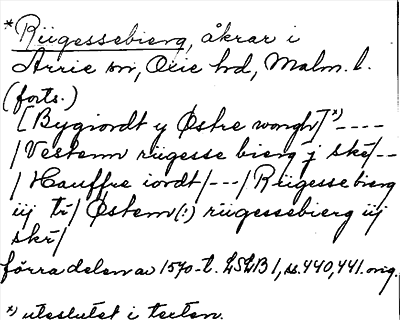 *Rügessebierg, åkrar i
Arrie sn, Oxie hd, Malm. l.
(forts.)
[Bygiordt y Østre wongh]*) ----
/Vestenn rügesse bierg j skr/--
/Hauffre iordt/---/Rügessebierg
iij tr/ Østenn(:) rügessebierg iij
skr/
förra delen av 1570-t. LSLB 1, ss. 440, 441. orig.
*) uteslutet i texten.